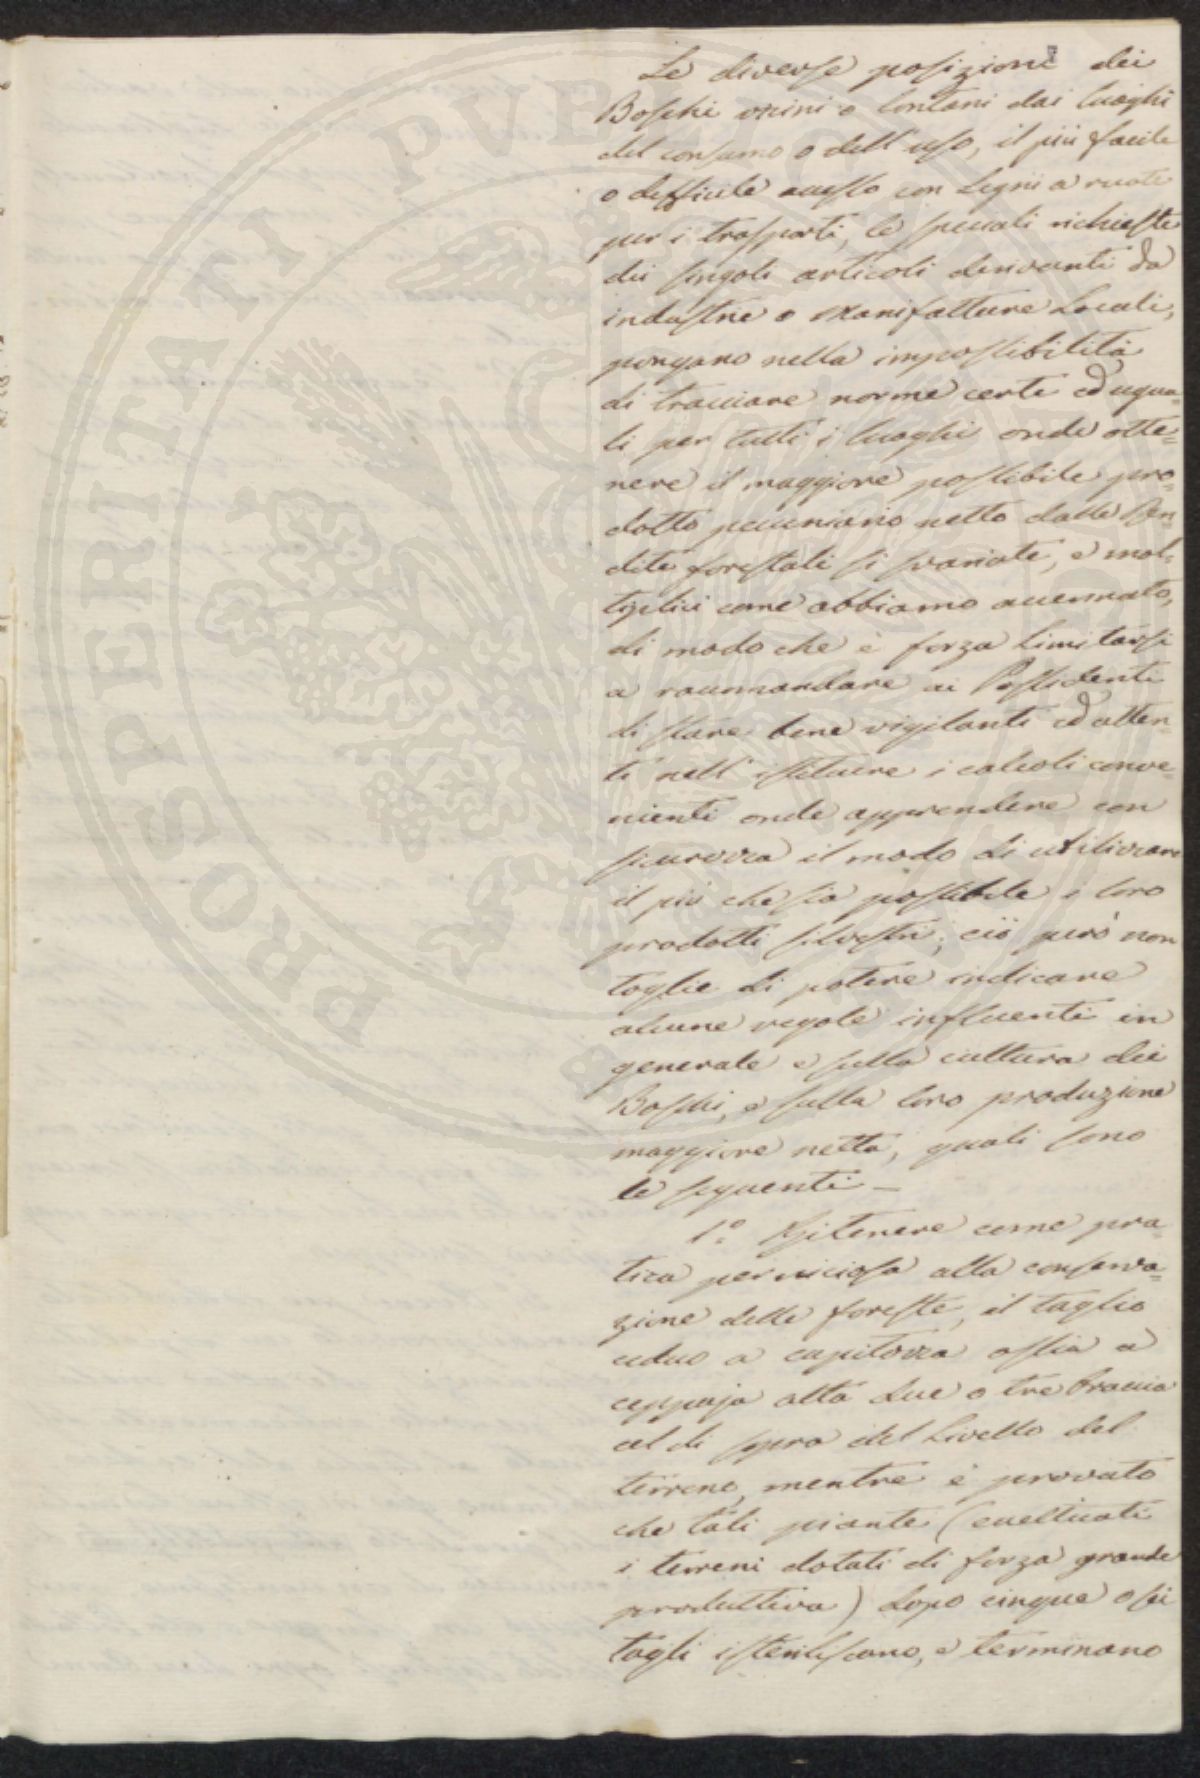 Le diverse posizioni dei
Boschi vicini o lontani dai luoghi
del consumo o dell'uso, il più facile
o difficile accesso con Legni a ruote
per i trasporti, le speciali richieste
dei singoli articoli derivanti da
industrie o Manifatture Locali,
pongano nella impossibilità
di tracciare norme certe ed egua=
li per tutti i luoghi onde otte=
nere il maggiore possibile pro=
dotto pecuniario netto dalle Ren=
dite forestali si svariate, e mol=
tiplici come abbiamo accennato,
di modo che è forza Limitarsi
a raccomandare ai Possidenti
di stare bene vigilanti ed atten=
ti nell'istituire i calcoli conve=
nienti onde apprendere con
sicurezza il modo di utilizzare
il più che sia possibile i loro
prodotti silvestri; ciò però non
toglie di potere indicare
alcune regole influenti in
generale e sulla cultura dei
Boschi, e sulla loro produzione
maggiore netta, quali sono
le seguenti _
1.° Ritenere come pra=
tica perniciosa alla conserva=
zione delle foreste, il taglio
ceduo a capitozza ossia a
ceppaja alta due o tre braccia
al di sopra del Livello del
terreno, mentre è provato
che tali piante (
i terreni dotati di forza grande
produttiva) dopo cinque o sei
tagli isteriliscono, e terminano
PROSPERITATI PVBLICAE